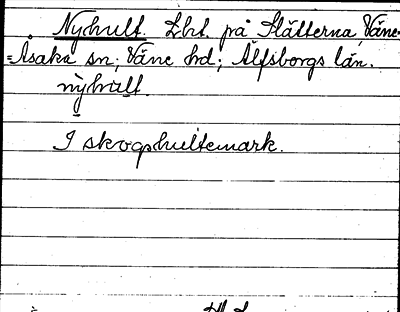 Nyhult. Lht. på Slätterna, Väne-
=Åsaka sn; Väne hd; Älfsborgs län.
nỳhult.
I skogshultemark.